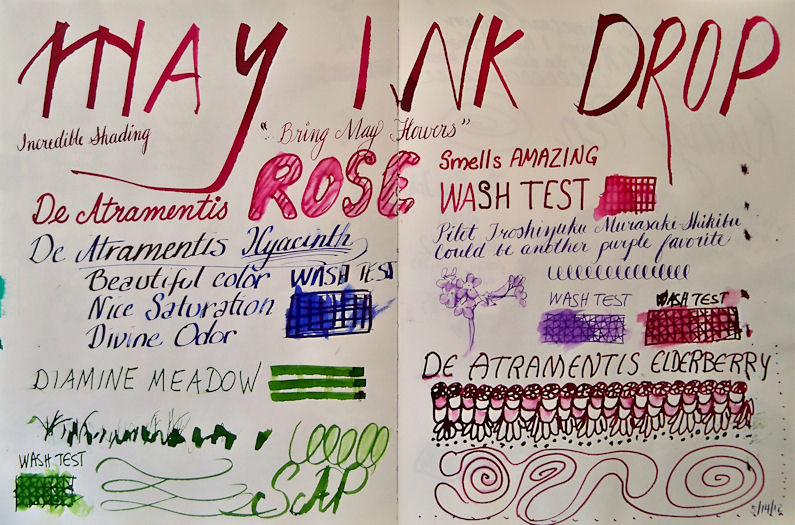 MAY INK DROP
Incredible Shading
"Bring May Flowers"
De Atramentis ROSE
Smells AMAZING
WASH TEST
De Atramentis Hyacinth
Beautiful color
Nice Saturation
Divine Odor
WASH TEST
Pilot Iroshizuku Murasaki-Shikibu
Could be another purple favorite
WASH TEST
WASH TEST
DIAMINE MEADOW
DE ATRAMENTIS ELDERBERRY
WASH TEST
5/14/12